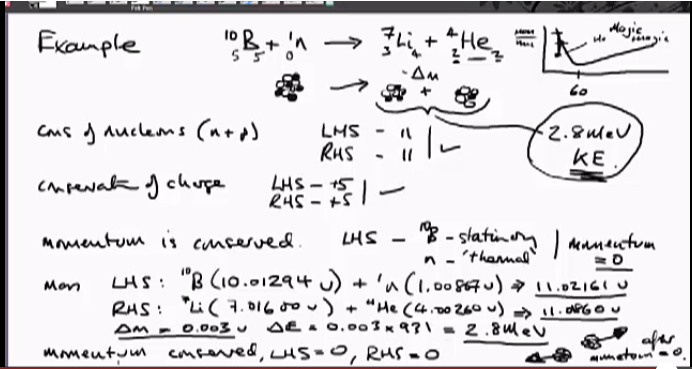 Example ¹⁰₅B₅ + ¹₀n → ⁷₃Li₄ + ⁴₂He₂
He Magic Magic
- Δm
+
60
cons of nucleons (n+p) LHS - 11
RHS - 11 ✓
2.8 MeV
KE.
conservatn of charge LHS - +5
RHS - +5 ✓
momentum is conserved. LHS - ¹⁰B - stationary
n - 'thermal'
momentum = 0
Mass LHS: ¹⁰B (10.01294 u) + ¹n (1.00867 u) ⇒ 11.02161 u
RHS: ⁷Li (7.01600 u) + ⁴He (4.00260 u) ⇒ 11.0860 u
Δm = 0.003 u ΔE = 0.003 x 931 = 2.8 MeV
momentum conserved, LHS = 0, RHS = 0
after
momentum = 0.